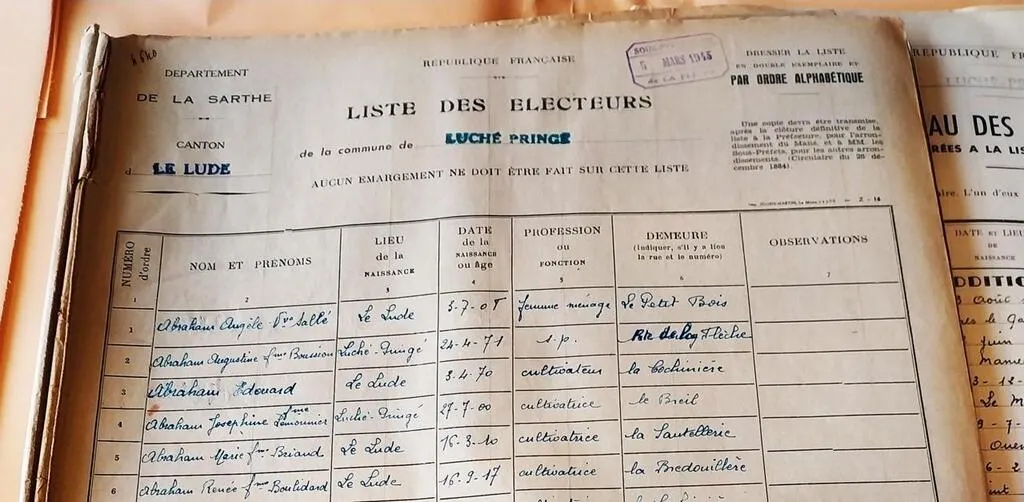 DÉPARTEMENT
DE LA SARTHE
CANTON
d LE LUDE
RÉPUBLIQUE FRANÇAISE
LISTE DES ELECTEURS
de la commune de LUCHÉ PRINGÉ
AUCUN EMARGEMENT NE DOIT ÊTRE FAIT SUR CETTE LISTE
MARS 1945
DRESSER LA LISTE
EN DOUBLE EXEMPLAIRE ET
PAR ORDRE ALPHABÉTIQUE
Une copie devra être transmise,
après la clôture définitive de la
liste à la Préfecture, pour l'arron-
dissement du Mans, et à MM. les
Sous-Préfets, pour les autres arron-
dissements. (Circulaire du 26 dé-
cembre 1884).
NUMÉRO d'ordre
NOM ET PRÉNOMS
LIEU de la NAISSANCE
DATE de la NAISSANCE ou Âge
PROFESSION ou FONCTION
DEMEURE (Indiquer, s'il y a lieu la rue et le numéro)
OBSERVATIONS
1 2 3 4 5 6 7
1 Abraham Angèle Vve Sallé Le Lude femme ménage Le Petit Bois
2 Abraham Augustine fme Luché-Pringé 24-4-71 s.p. Flèche
3 Abraham Edouard Le Lude 3-4-70 cultivateur la Cochinière
4 Abraham Josephine fme Lemonnier Luché-Pringé 27-7-00 cultivatrice le Breil
5 Abraham Marie fme Briand Le Lude 16-3-10 cultivatrice la
6 Abraham Renée fme Boulidard Le Lude 16-9-17 cultivatrice la Bredouillère
RÉPUBLIQUE FR
AU DES
RÉES A LA LIS
DATE ET LIEU
DE
NAISSANCE
DDITIO